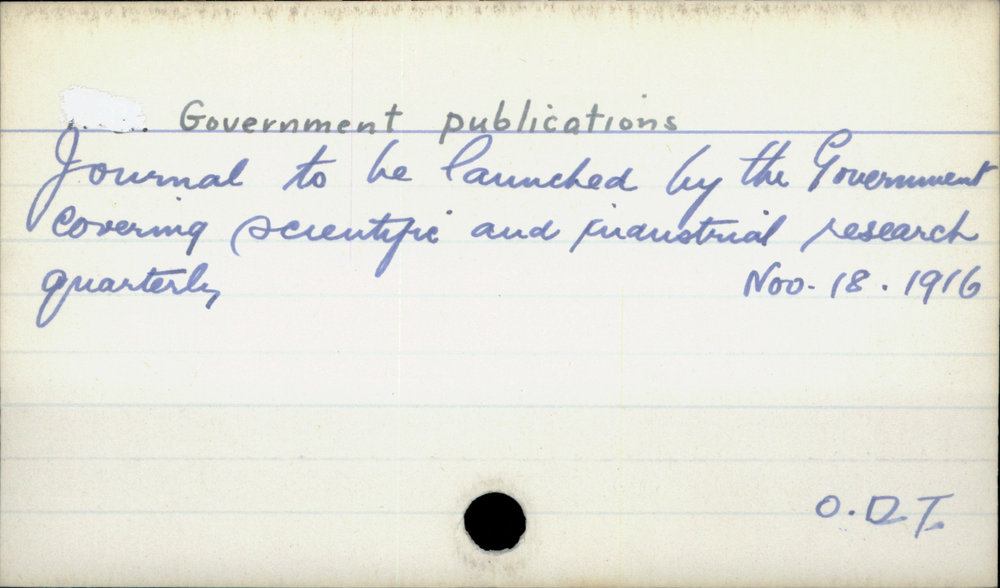 Government publications
Journal to be launched by the Government
covering scientific and industrial research
quarterly Nov. 18. 1916
O.D.T.